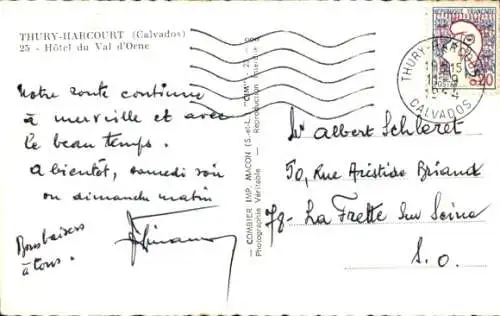 THURY-HARCOURT (Calvados)
25 - Hôtel du Val d'Orne
Notre route continue
à merveille et avec
le beau temps.
A bientôt, samedi soir
ou dimanche matin
Bons baisers
à tous.
COMBIER IMP. MACON (S.-et-L.) "CIM"
Photographie Véritable - Reproduction interdite
REPUBLIQUE FRANÇAISE
0,20
THURY-HARCOURT
CALVADOS
Mr Albert Schleret
50, Rue Aristide Briand
78- La Frette sur Seine
S. O.